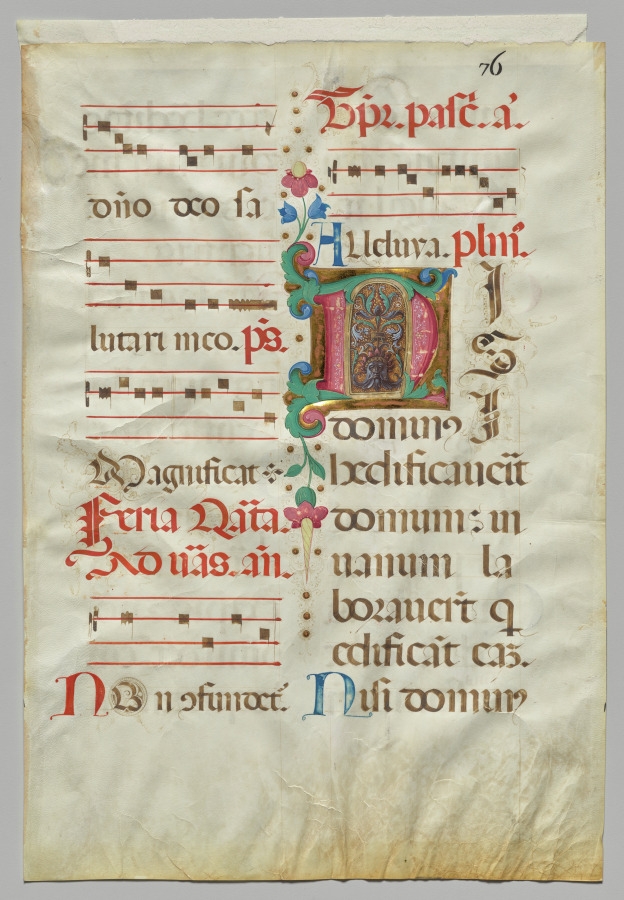 76
dño deo sa
lutari meo. ps.
Magnificat
Feria Qãta.
Ad vãs. añ.
Non ɔfundet̃.
Tp̃r. pasc̃. a'.
Alleluya. plm̃.
NISI
dominꝰ
hedificauerit
domum: in
uanum la
borauerĩt q
edificãt eaʒ.
Nisi dominꝰ